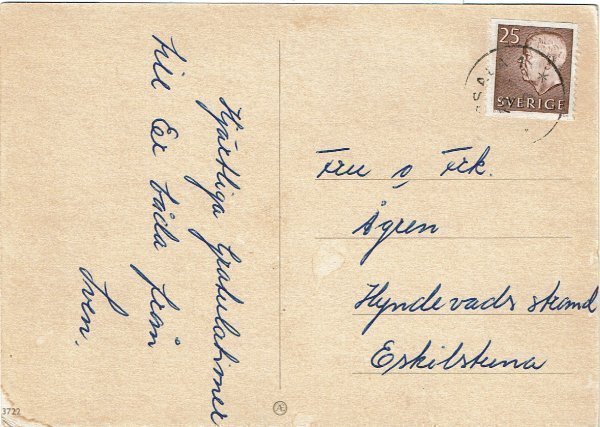 Hjärtliga Gratulationer
till Er båda från
Sven.
25
SVERIGE
Fru o Frk.
Ågren
Hyndevads strand
Eskilstuna
3722
Æ